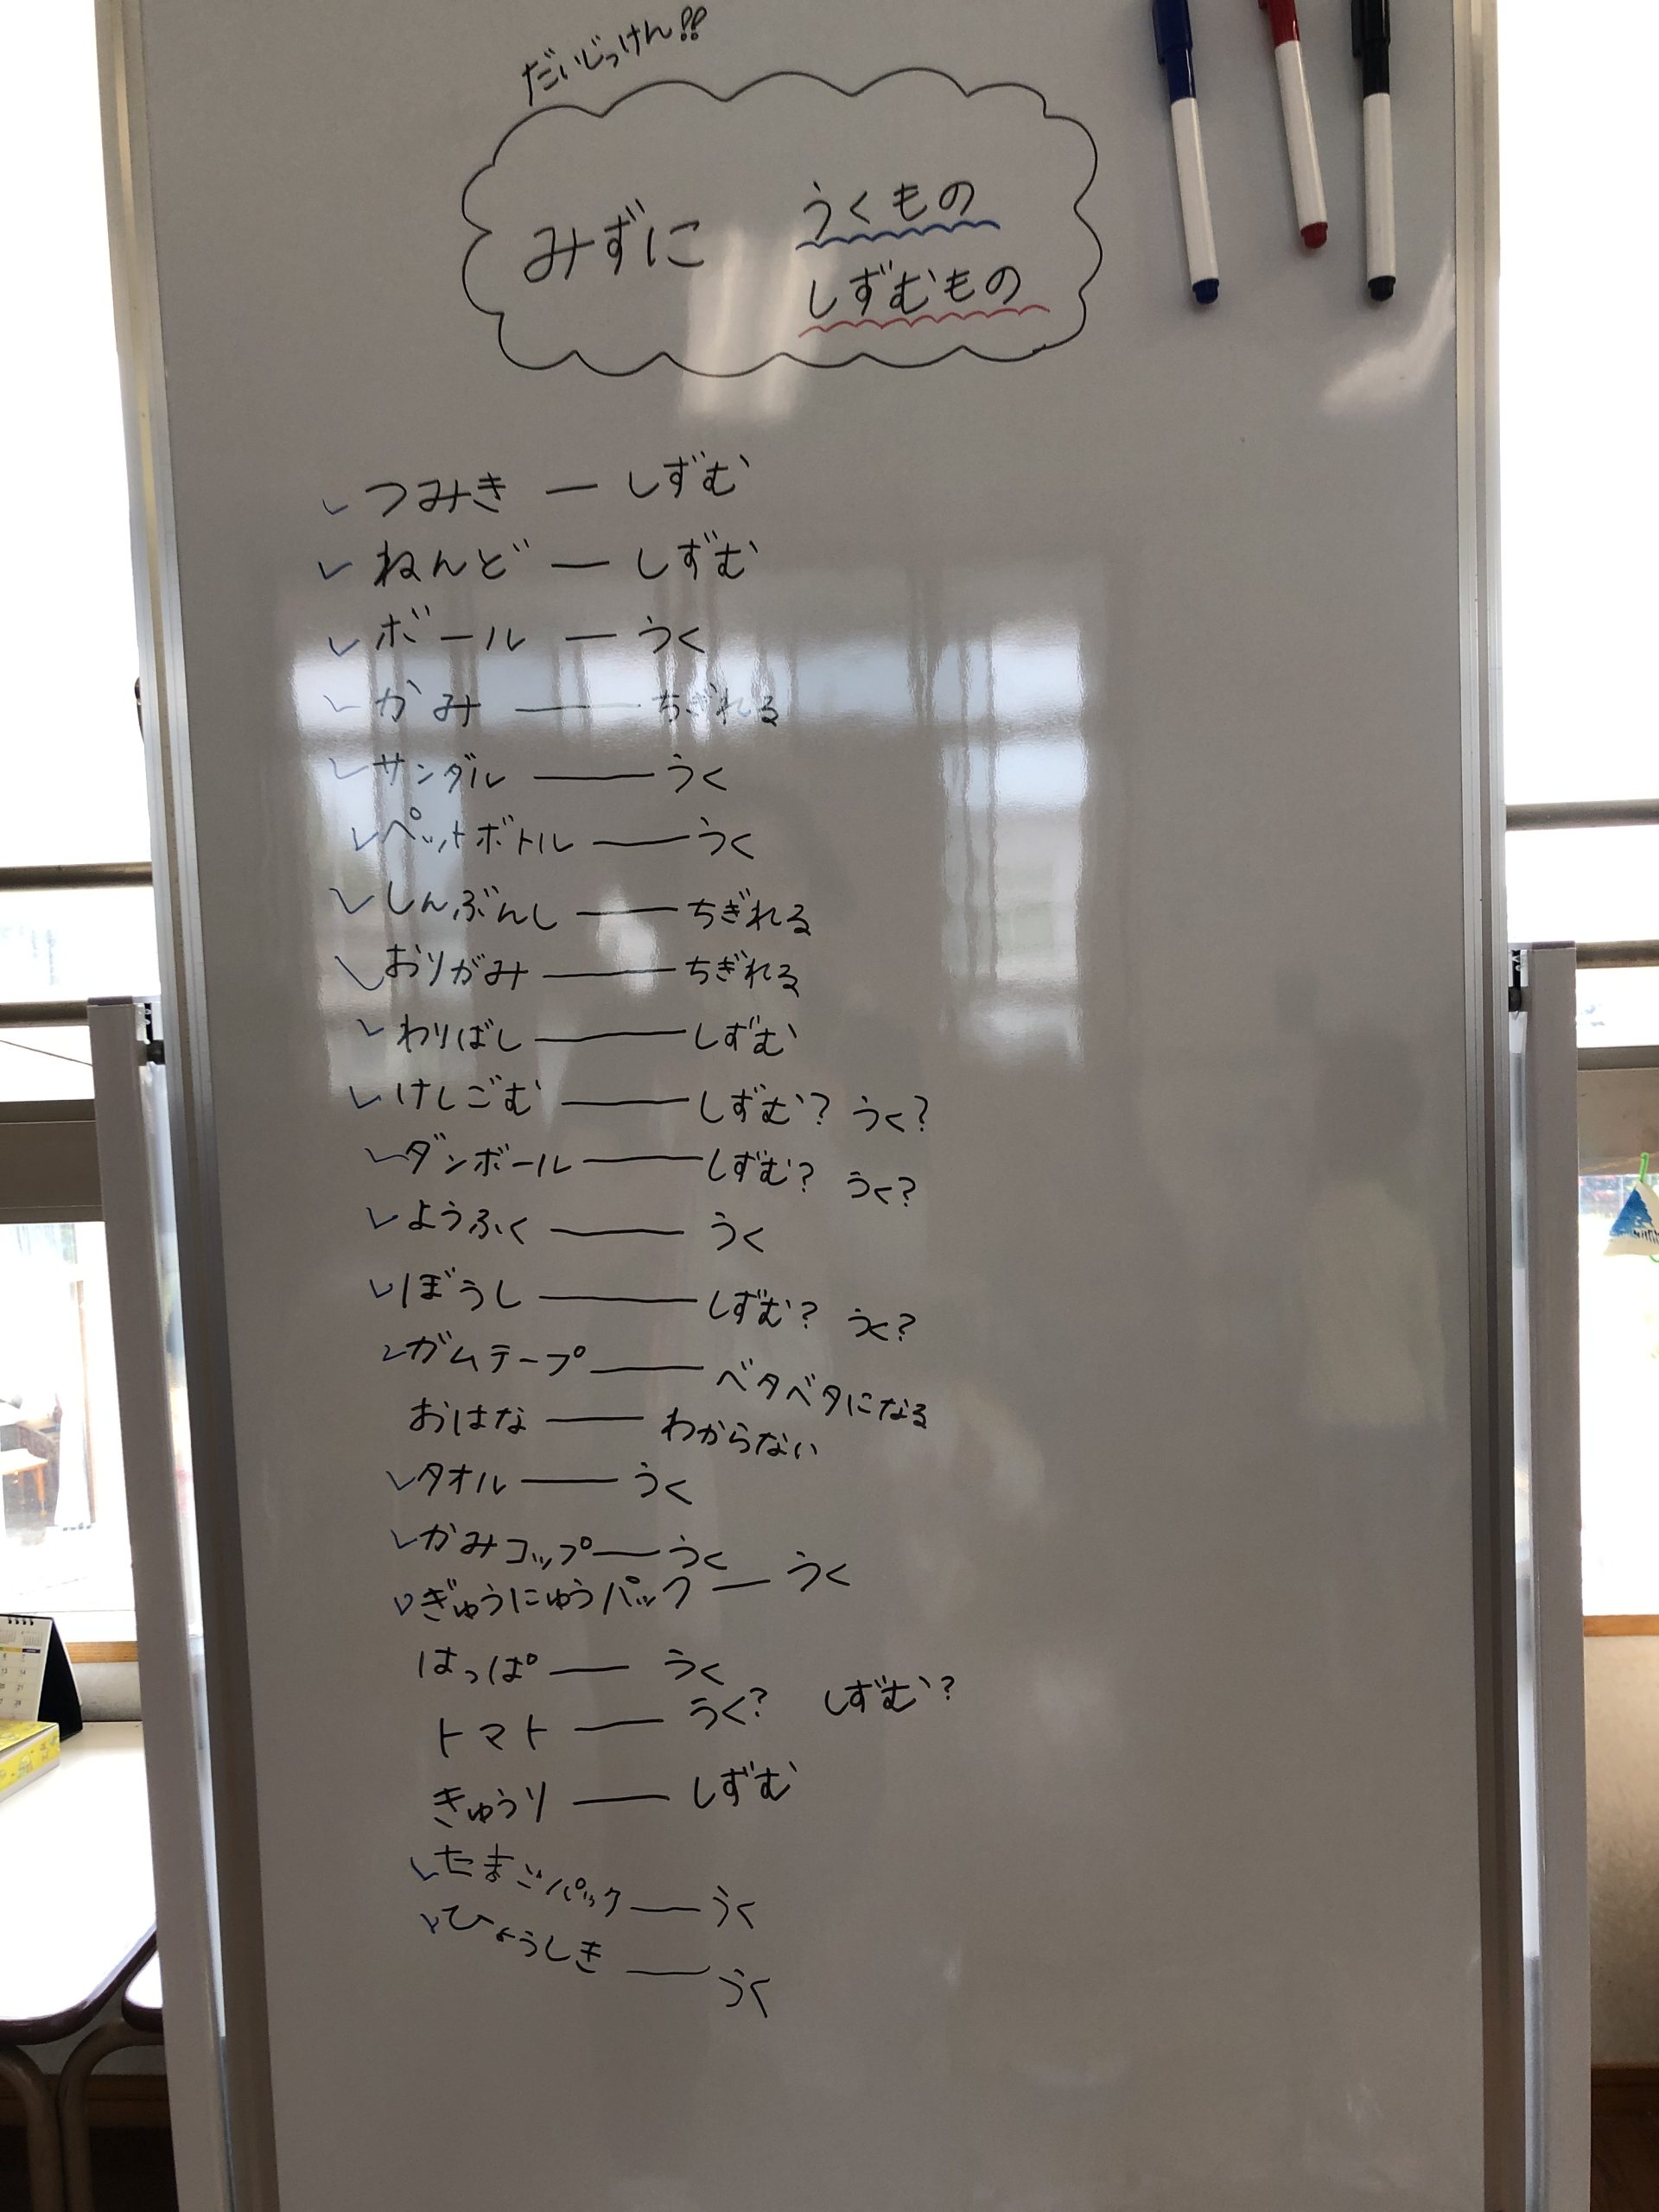 だいじっけん!!
みずに うくもの
しずむもの
つみき ー しずむ
ねんど ー しずむ
ボール ー うく
かみ ー ちぎれる
サンダル ー うく
ペットボトル ー うく
しんぶんし ー ちぎれる
おりがみ ー ちぎれる
わりばし ー しずむ
けしごむ ー しずむ? うく?
ダンボール ー しずむ? うく?
ようふく ー うく
ぼうし ー しずむ? うく?
ガムテープ ー ベタベタになる
おはな ー わからない
タオル ー うく
かみコップ ー うく
ぎゅうにゅうパック ー うく
はっぱ ー うく
トマト ー うく? しずむ?
きゅうり ー しずむ
たまごパック ー うく
ひょうしき ー うく